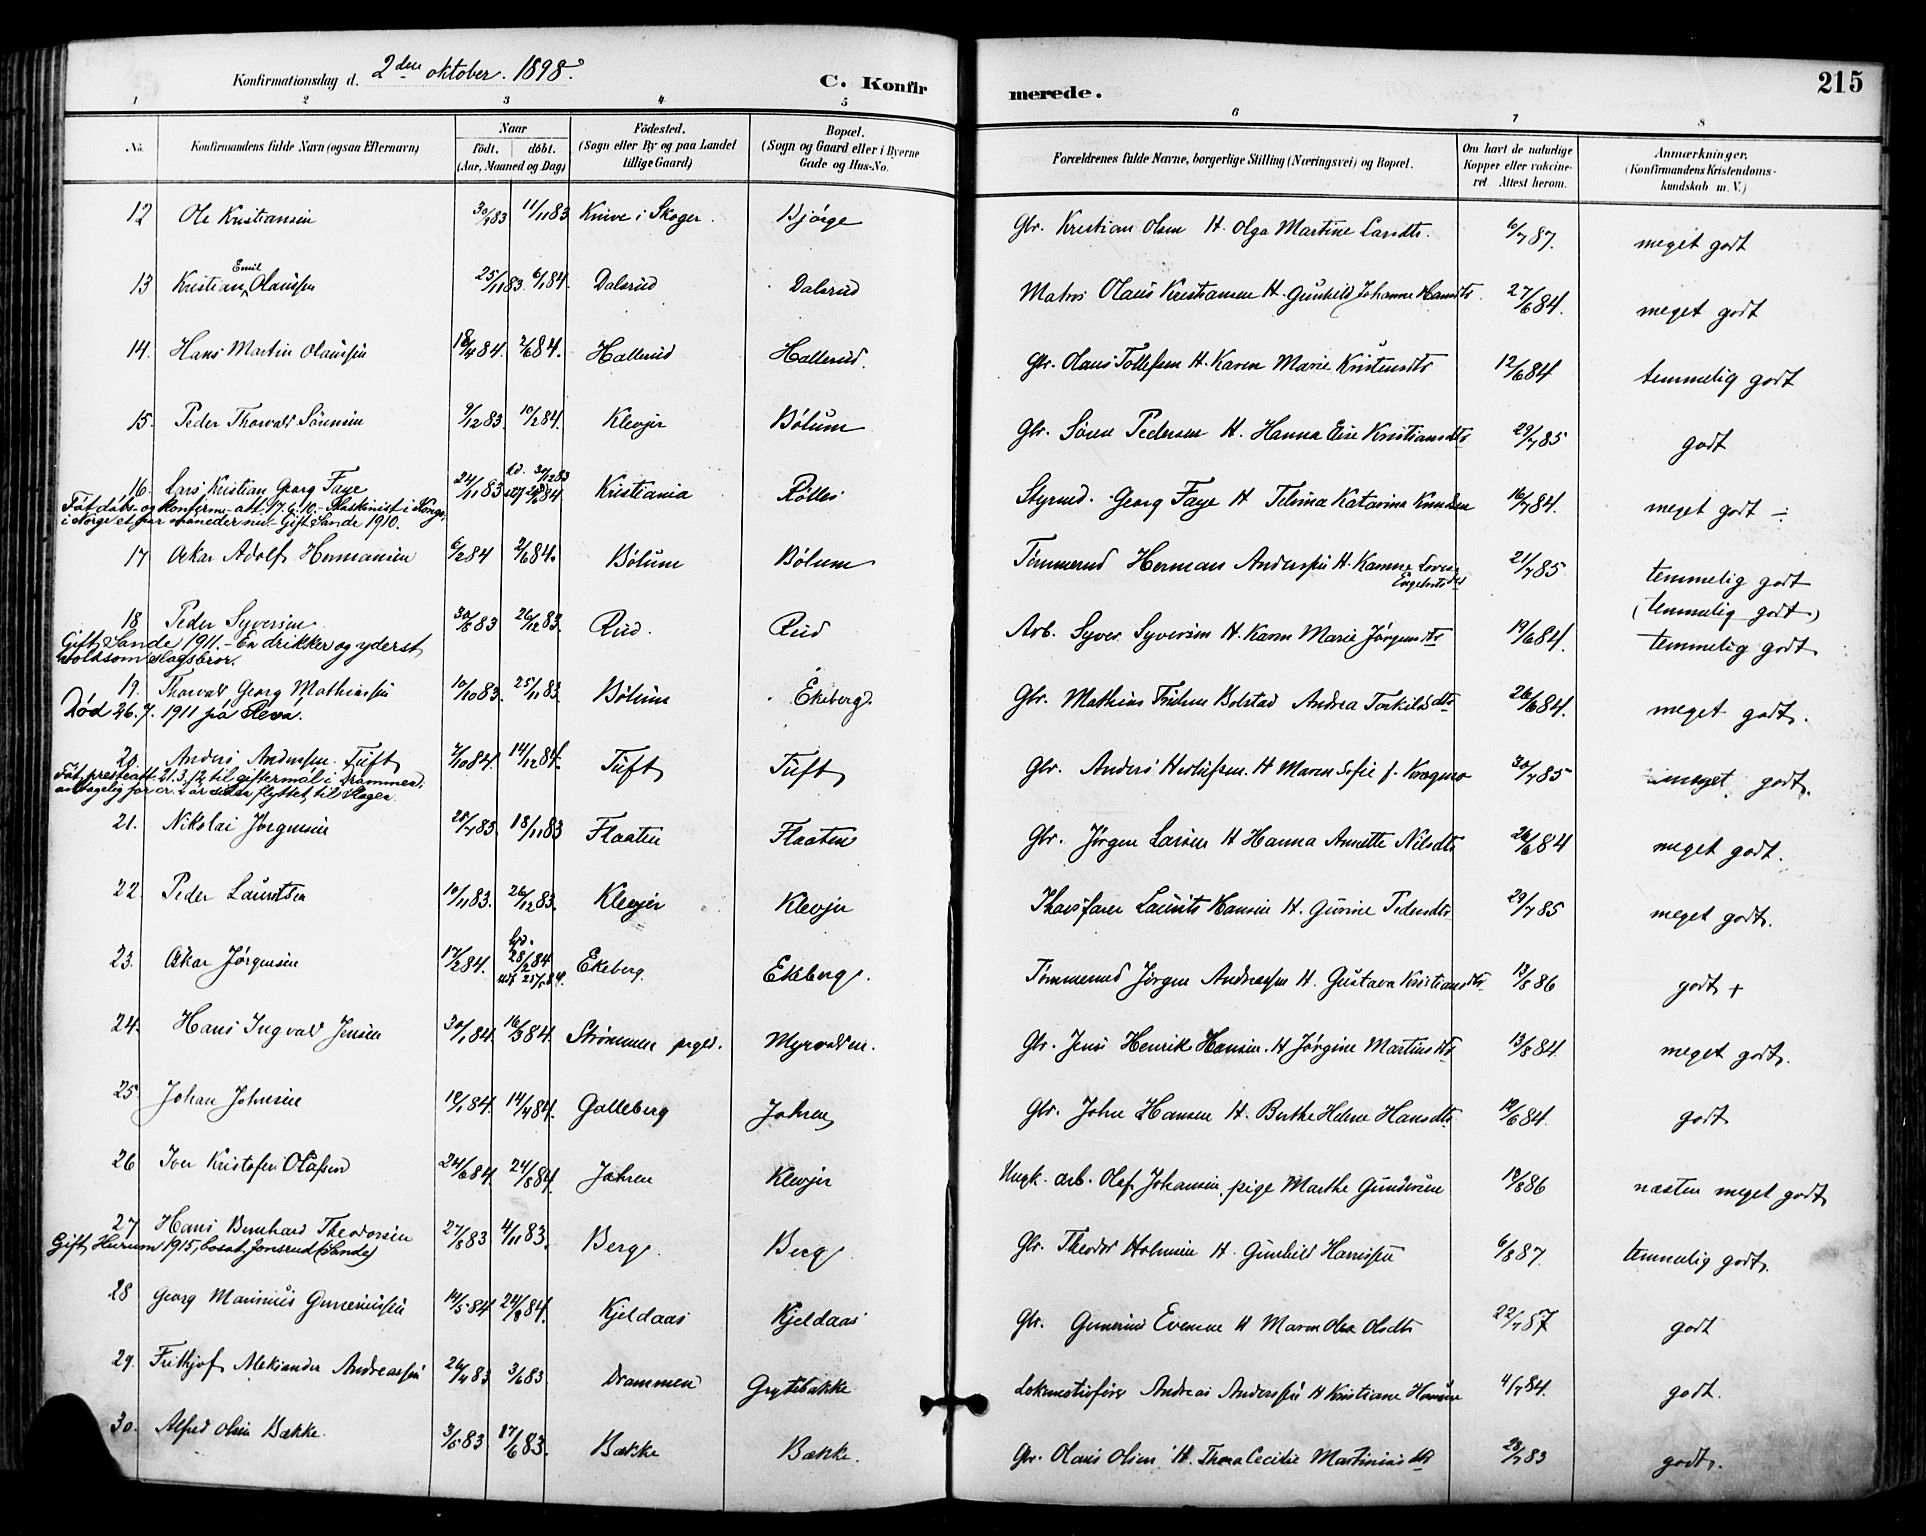 Konfirmationsdag d. 2den oktober. 1898.
C. Konfirmerede.
215
1 2 3 4 5 6 7 8
No. Konfirmandens fulde Navn (ogsaa Efternavn) Naar født. døbt. (Aar, Maaned og Dag) Fødested. (Sogn eller By og paa Landet tillige Gaard) Bopæl. (Sogn og Gaard eller i Byerne Gade og Hus-No. Forældrenes fulde Navne, borgerlige Stilling (Næringsvei) og Bopæl. Om havt de naturlige Kopper eller vakcineret Attest herom. Anmærkninger. (Konfirmandens Kristendomskundskab m. V.)
12 Ole Kristiansen 30/9 83 11/11 83 Knive i Skoger. Bjørge Gbr. Kristian Olsen H. Olga Martine Larsdtr. 6/7 87. meget godt
13 Kristian Emil Olaussen 25/11 83. 6/1 84. Dalsrud Dalsrud Matros Olaus Kristiansen H. Gunhild Johanne Hansdtr. 27/6 84. meget godt
14. Hans Martin Olaussen 18/4 84. 2/6 84. Hallerud Hallerud. Gbr. Olaus Tollefsen H. Karen Marie Kristensdtr 12/6 84 temmelig godt
15. Peder Thorvald Sørensen 9/12 83. 10/2 84. Klevjer Bølum Gbr. Søren Pedersen H. Hanna Elise Kristiansdtr 29/7 85 godt
16. Lars Kristian Georg Faye 24/11 83 hd. 30/12 83 Kristiania Rølles Styrmd. Georg Faye H Telsina Katarina Knudsen 16/7 84. meget godt ÷
Fåt dåbs- og konfirm.-att. 17.6.10.- Maskinist i Kongo,
i Norge et par måneder nu.- Gift Sande 1910.
17 Oskar Adolf Hermansen 6/2 84 2/6 84. Bølum Bølum Tømmermd Herman Anderssen H. Karene Lovise Engebretsdtr 21/7 85 temmelig godt
18 Peder Syversen 30/6 83 26/12 83. Rud. Rud Arb. Syver Syversen H. Karen Marie Jørgensdtr 19/6 84. (temmelig godt) temmelig godt
Gift Sande 1911.- En drikker og yderst
voldsom slagsbror.
19. Thorvald Georg Mathiassen 10/10 83. 25/11 83. Bølum Ekeberg. Gbr. Mathias Bolstad Andrea Torkildsdtr 26/6 84. meget godt.
Død 26.7.1911 på Revå.
20. Anders Anderssen Tuft 2/10 84. 14/12 84. Tuft Tuft Gbr. Anders Herlufssen. H Maren Sofie f. Kragmo 30/7 85 meget godt.
Fåt presteatt. 21.3.12 til giftermål i Drammen,
antagelig for cr. 2 år siden flyttet til Skoger.
21. Nikolai Jørgensen 25/7 83. 18/11 83 Flaaten Flaaten Gbr. Jørgen Larsen H Hanna Annette Nilsdtr 26/6 84 meget godt.
22 Peder Lauritsen 10/11 83. 26/12 83. Klevjer Klevjer Laurits Hansen H. Gurine Pedersdtr 29/7 85 meget godt.
23. Oskar Jørgensen 17/2 84. hd. 28/2 84 Ekeberg. Ekeberg. Tømmermd Jørgen Andreassen H. Gustava Kristiansdtr. 13/8 86 godt +
24. Hans Ingvald Jensen 30/1 84. 16/3 84. Strømmen Myrvolden. Gbr. Jens Henrik Hansen. H Jørgine Martinsdtr 13/8 84. meget godt.
25. Johan Johnsen 12/1 84. 14/4 84. Galleberg Jahren Gbr. John Hansen H. Berthe Helene Hansdtr. 12/6 84. godt
26 Iver Kristofer Olafsen 24/6 84. 24/8 84. Jahren Klevjer Ungk. arb. Olaf Johansen, pige Marthe Gundersen 19/8 86 næsten meget godt
27 Hans Bernhard Theodorsen 27/8 83 4/11 83. Berg. Berg. Gbr. Theodor H. Gunhild Hanssen 6/8 87. temmelig godt.
Gift Hurum 1915, bosat Jonsrud (Sande)
28 Georg Marinius Gunneriussen 14/5 84 24/8 84. Kjeldaas Kjeldaas Gbr. Gunerius Evensen H Maren Olea Olsdtr 22/7 87 godt
29. Frithjof Aleksander Andreassen 26/4 83 3/6 83 Drammen Grytebakke Lokomotivfører Andreas Anderssen H Kristiane Hansen 4/7 84. godt.
30. Alfred Olsen Bakke. 3/5 83 17/6 83. Bakke Bakke. Gbr. Olaus Olsen H. Thora Cecilie Martiniusdtr 28/7 83 godt.